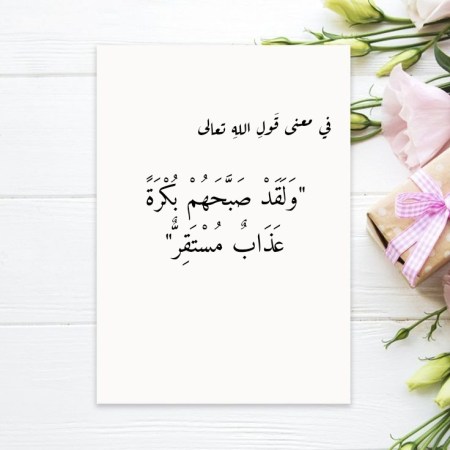 في معنى قَولِ اللهِ تعالى
"وَلَقَدْ صَبَّحَهُمْ بُكْرَةً
عَذَابٌ مُسْتَقِرٌّ"